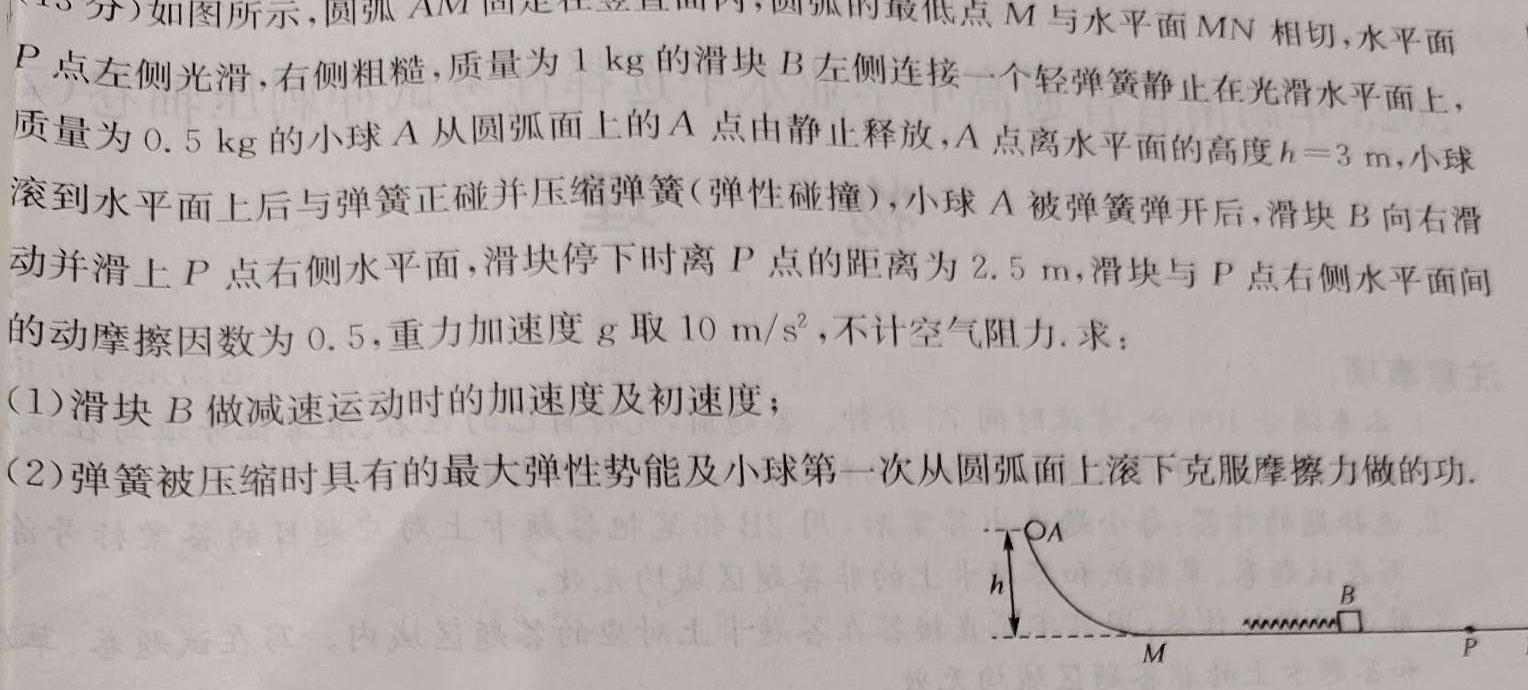 分)如图所示,圆弧 AM 固定在竖直面内,圆弧的最低点 M 与水平面 MN 相切,水平面
P 点左侧光滑,右侧粗糙,质量为 1 kg 的滑块 B 左侧连接一个轻弹簧静止在光滑水平面上,
质量为 0.5 kg 的小球 A 从圆弧面上的 A 点由静止释放,A 点离水平面的高度 h=3 m,小球
滚到水平面上后与弹簧正碰并压缩弹簧(弹性碰撞),小球 A 被弹簧弹开后,滑块 B 向右滑
动并滑上 P 点右侧水平面,滑块停下时离 P 点的距离为 2.5 m,滑块与 P 点右侧水平面间
的动摩擦因数为 0.5,重力加速度 g 取 10 m/s²,不计空气阻力.求:
(1)滑块 B 做减速运动时的加速度及初速度;
(2)弹簧被压缩时具有的最大弹性势能及小球第一次从圆弧面上滚下克服摩擦力做的功.
A
h
B
M
P